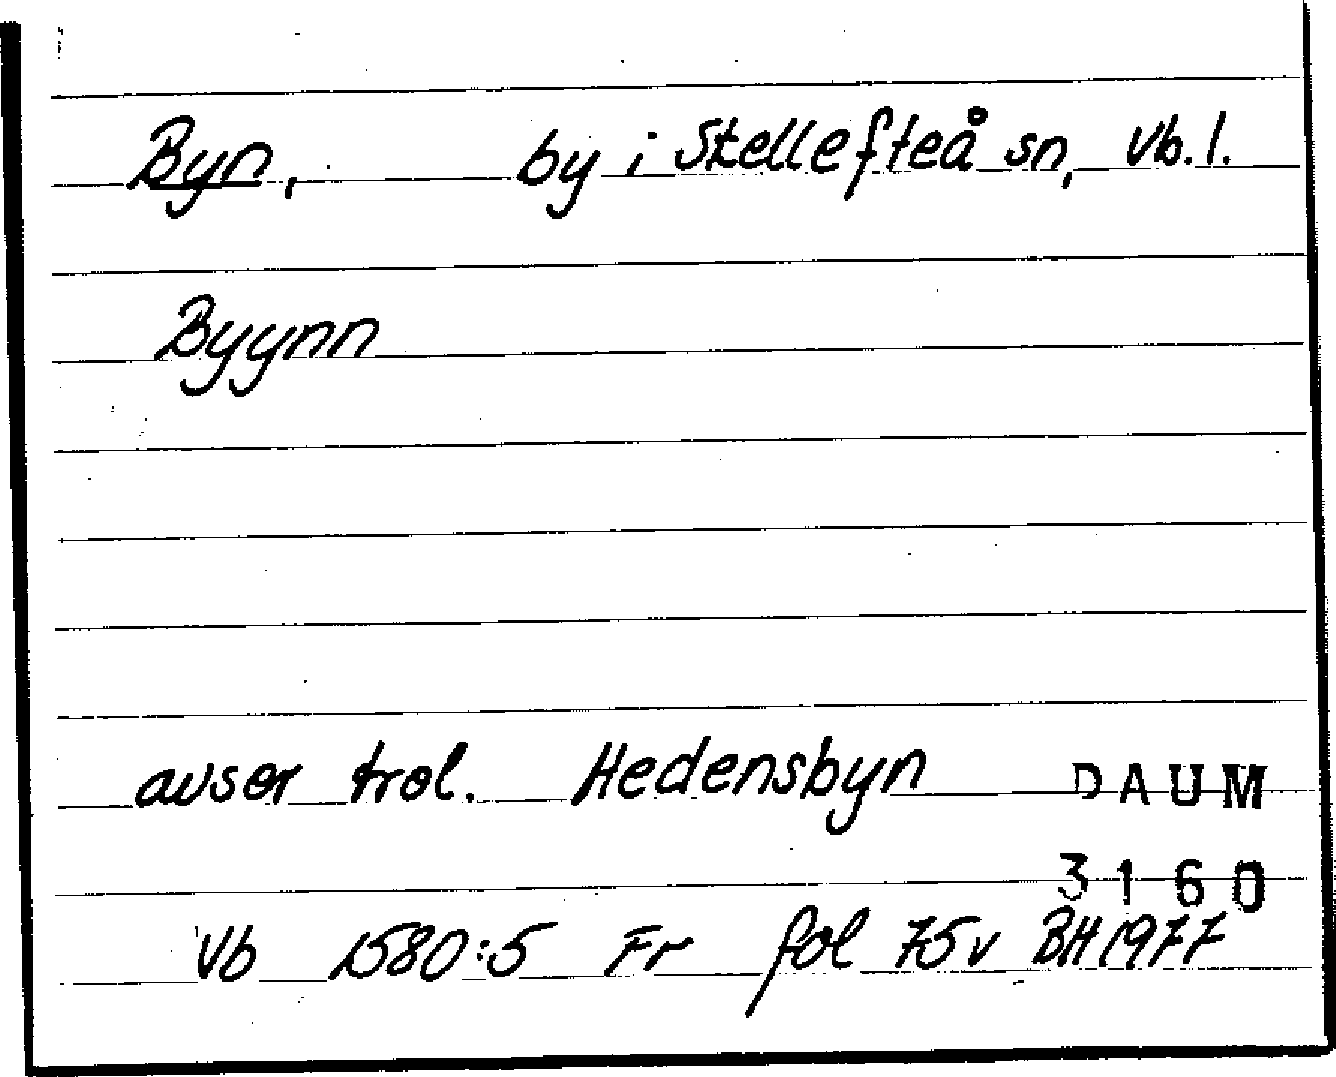 Byn, by i Skellefteå sn, Vb.l.
Byynn
avser trol. Hedensbyn DAUM
3160
Vb 1580:5 Fr fol 75v BH 1977